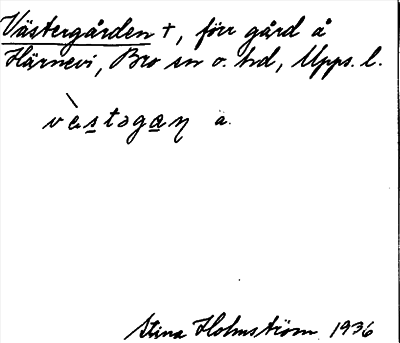 Västergården +, förr gård å
Härnevi, Bro sn o. hd, Upps. l.
vè̀stəgan a.
Stina Holmström 1936